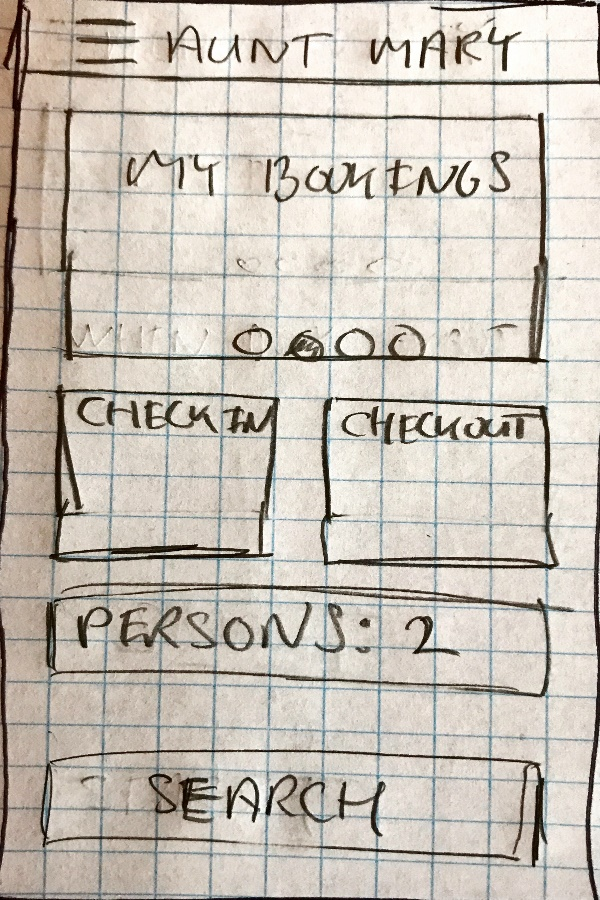 AUNT MARY
MY BOOKINGS
CHECK IN
CHECKOUT
PERSONS: 2
SEARCH